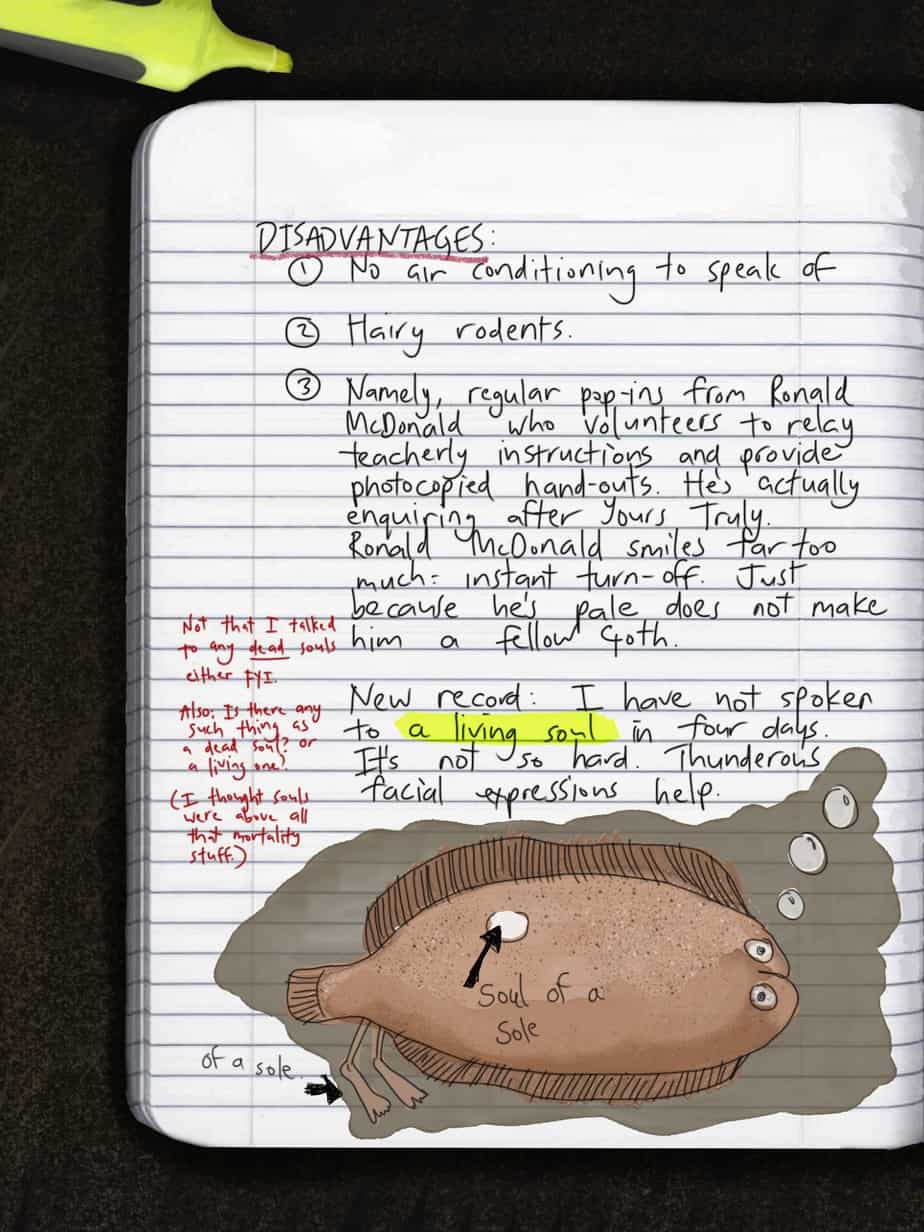 DISADVANTAGES:
① No air conditioning to speak of
② Hairy rodents.
③ Namely, regular pop-ins from Ronald
McDonald who volunteers to relay
teacherly instructions and provide
photocopied hand-outs. He's actually
enquiring after Yours Truly.
Ronald McDonald smiles far too
much: instant turn-off. Just
because he's pale does not make
him a fellow Goth.
New record: I have not spoken
to a living soul in four days.
It's not so hard. Thunderous
facial expressions help.
Not that I talked
to any dead souls
either FYI.
Also: Is there any
such thing as
a dead soul? or
a living one?
(I thought souls
were above all
that mortality
stuff.)
Soul of a
Sole
of a sole.